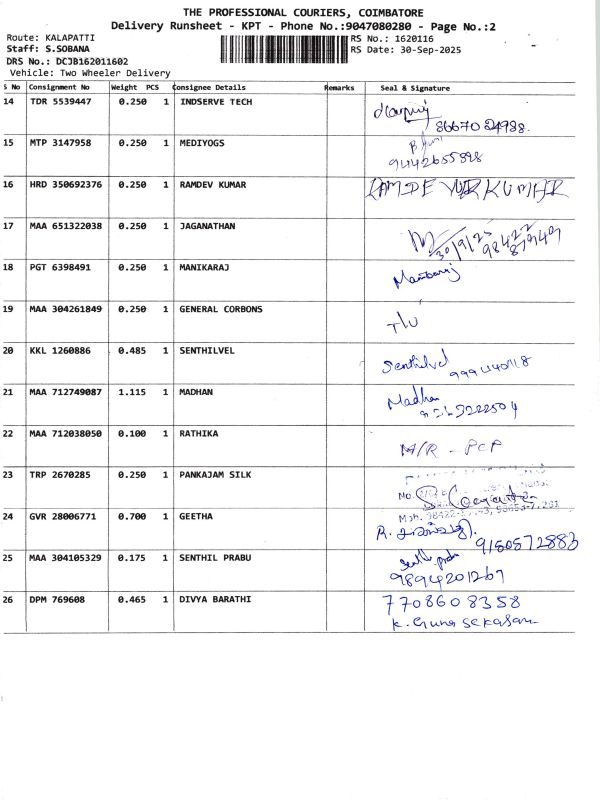 THE PROFESSIONAL COURIERS, COIMBATORE
Delivery Runsheet - KPT - Phone No.:9047080280 - Page No.:2
Route: KALAPATTI RS No.: 1620116
Staff: S.SOBANA RS Date: 30-Sep-2025
DRS No.: DCJB162011602
Vehicle: Two Wheeler Delivery
S No Consignment No Weight PCS Consignee Details Remarks Seal & Signature
14 TDR 5539447 0.250 1 INDSERVE TECH
8667024988.
15 MTP 3147958 0.250 1 MEDIYOGS
9442655898
16 HRD 350692376 0.250 1 RAMDEV KUMAR
17 MAA 651322038 0.250 1 JAGANATHAN
30/9/25
18 PGT 6398491 0.250 1 MANIKARAJ
Manikaraj
19 MAA 304261849 0.250 1 GENERAL CORBONS
20 KKL 1260886 0.485 1 SENTHILVEL
Senthilvel
21 MAA 712749087 1.115 1 MADHAN
Madhan
22 MAA 712038050 0.100 1 RATHIKA
N/R - PCP
23 TRP 2670285 0.250 1 PANKAJAM SILK
24 GVR 28006771 0.700 1 GEETHA
9150572883
25 MAA 304105329 0.175 1 SENTHIL PRABU
Senthil prabu
9894201267
26 DPM 769608 0.465 1 DIVYA BARATHI
7708608358
K. Gunasekaran